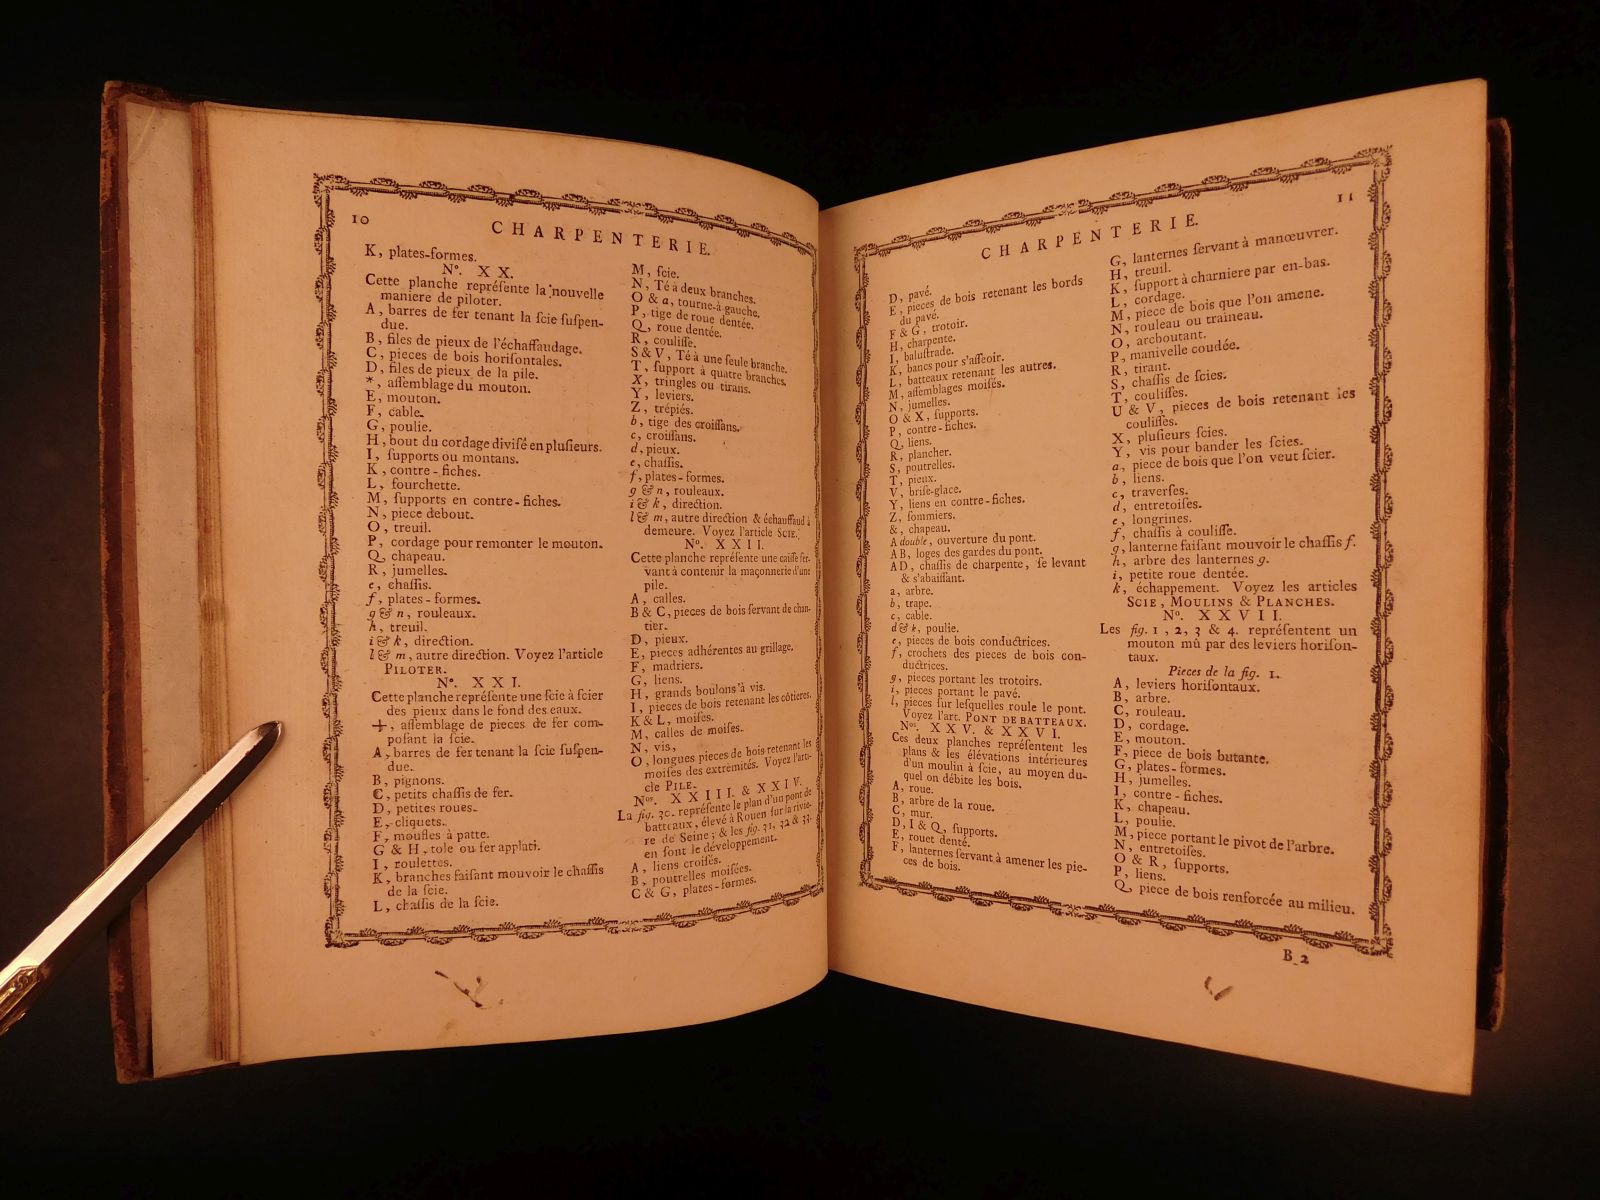 10
CHARPENTERIE.
K, plates-formes.
N°. XX.
Cette planche repréſente la nouvelle
maniere de piloter.
A, barres de fer tenant la ſcie ſuſpen-
due.
B, files de pieux de l'échaffaudage.
C, pieces de bois horiſontales.
D, files de pieux de la pile.
*, aſſemblage du mouton.
E, mouton.
F, cable.
G, poulie.
H, bout du cordage diviſé en pluſieurs.
I, ſupports ou montans.
K, contre-fiches.
L, fourchette.
M, ſupports en contre-fiches.
N, piece debout.
O, treuil.
P, cordage pour remonter le mouton.
Q, chapeau.
R, jumelles.
e, chaſſis.
f, plates-formes.
g & n, rouleaux.
h, treuil.
i & k, direction.
l & m, autre direction. Voyez l'article
PILOTER.
N°. XXI.
Cette planche repréſente une ſcie à ſcier
des pieux dans le fond des eaux.
+, aſſemblage de pieces de fer com-
poſant la ſcie.
A, barres de fer tenant la ſcie ſuſpen-
due.
B, pignons.
C, petits chaſſis de fer.
D, petites roues.
E, cliquets.
F, moufles à patte.
G & H, tole ou fer applati.
I, roulettes.
K, branches faiſant mouvoir le chaſſis
de la ſcie.
L, chaſſis de la ſcie.
M, ſcie.
N, Té à deux branches.
O & a, tourne-à-gauche.
P, tige de roue dentée.
Q, roue dentée.
R, couliſſe.
S & V, Té à une ſeule branche.
T, ſupport à quatre branches.
X, tringles ou tirans.
Y, leviers.
Z, trépiés.
b, tige des croiſſans.
c, croiſſans.
d, pieux.
e, chaſſis.
f, plates-formes.
g & n, rouleaux.
i & k, direction.
l & m, autre direction & échauffaud à
demeure. Voyez l'article SCIE.
N°. XXII.
Cette planche repréſente une caiſſe ſer-
vant à contenir la maçonnerie d'une
pile.
A, calles.
B & C, pieces de bois ſervant de chan-
tier.
D, pieux.
E, pieces adhérentes au grillage.
F, madriers.
G, liens.
H, grands boulons à vis.
I, pieces de bois retenant les côtieres.
K & L, moiſes.
M, calles de moiſes.
N, vis,
O, longues pieces de bois retenant les
moiſes des extrémités. Voyez l'arti-
cle PILE.
Nos. XXIII. & XXIV.
La fig. 30. repréſente le plan d'un pont de
batteaux, élevé à Rouen ſur la rivie-
re de Seine; & les fig. 31, 32 & 33.
en ſont le développement.
A, liens croiſés.
B, poutrelles moiſées.
C & G, plates-formes.
11
CHARPENTERIE.
D, pavé.
E, pieces de bois retenant les bords
du pavé.
F & G, trotoir.
H, charpente.
I, baluſtrade.
K, bancs pour s'aſſeoir.
L, batteaux retenant les autres.
M, aſſemblages moiſés.
N, jumelles.
O & X, ſupports.
P, contre-fiches.
Q, liens.
R, plancher.
S, poutrelles.
T, pieux.
V, briſe-glace.
Y, liens en contre-fiches.
Z, ſommiers.
&, chapeau.
A double, ouverture du pont.
AB, loges des gardes du pont.
AD, chaſſis de charpente, ſe levant
& s'abaiſſant.
a, arbre.
b, trape.
c, cable.
d & k, poulie.
e, pieces de bois conductrices.
f, crochets des pieces de bois con-
ductrices.
g, pieces portant les trotoirs.
i, pieces portant le pavé.
l, pieces ſur leſquelles roule le pont.
Voyez l'art. PONT DE BATTEAUX.
Nos. XXV. & XXVI.
Ces deux planches repréſentent les
plans & les élévations intérieures
d'un moulin à ſcie, au moyen du-
quel on débite les bois.
A, roue.
B, arbre de la roue.
C, mur.
D, I & Q, ſupports.
E, rouet denté.
F, lanternes ſervant à amener les pie-
ces de bois.
G, lanternes ſervant à manœuvrer.
H, treuil.
K, ſupport à charniere par en-bas.
L, cordage.
M, piece de bois que l'on amene.
N, rouleau ou traîneau.
O, arcboutant.
P, manivelle coudée.
R, tirant.
S, chaſſis de ſcies.
T, couliſſes.
U & V, pieces de bois retenant les
couliſſes.
X, pluſieurs ſcies.
Y, vis pour bander les ſcies.
a, piece de bois que l'on veut ſcier.
b, liens.
c, traverſes.
d, entretoiſes.
e, longrines.
f, chaſſis à couliſſe.
g, lanterne faiſant mouvoir le chaſſis f.
h, arbre des lanternes g.
i, petite roue dentée.
k, échappement. Voyez les articles
SCIE, MOULINS & PLANCHES.
N°. XXVII.
Les fig. 1, 2, 3 & 4. repréſentent un
mouton mû par des leviers horiſon-
taux.
Pieces de la fig. 1.
A, leviers horiſontaux.
B, arbre.
C, rouleau.
D, cordage.
E, mouton.
F, piece de bois butante.
G, plates-formes.
H, jumelles.
I, contre-fiches.
K, chapeau.
L, poulie.
M, piece portant le pivot de l'arbre.
N, entretoiſes.
O & R, ſupports.
P, liens.
Q, piece de bois renforcée au milieu.
B 2